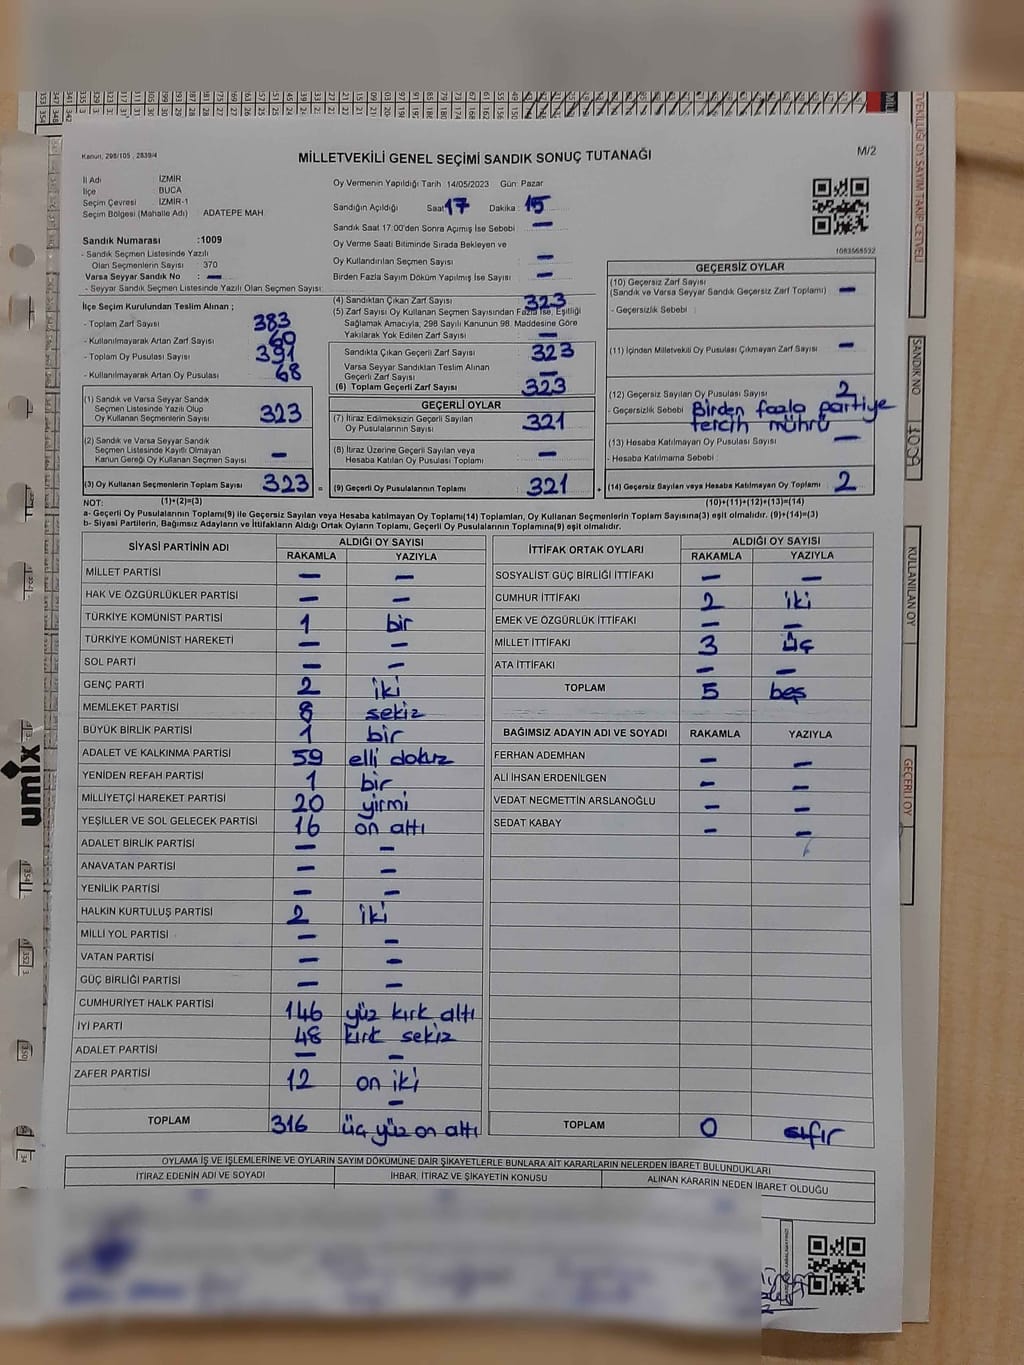 Kanun, 298/105 , 2839/4
MİLLETVEKİLİ GENEL SEÇİMİ SANDIK SONUÇ TUTANAĞI
M/2
İl Adı İZMİR
İlçe BUCA
Seçim Çevresi İZMİR-1
Seçim Bölgesi (Mahalle Adı) : ADATEPE MAH
Sandık Numarası :1009
- Sandık Seçmen Listesinde Yazılı
Olan Seçmenlerin Sayısı : 370
Varsa Seyyar Sandık No : –
- Seyyar Sandık Seçmen Listesinde Yazılı Olan Seçmen Sayısı:
Oy Vermenin Yapıldığı Tarih : 14/05/2023 Gün: Pazar
Sandığın Açıldığı Saat 17 Dakika 15
Sandık Saat 17:00'den Sonra Açımış İse Sebebi –
Oy Verme Saati Bitiminde Sırada Bekleyen ve
Oy Kullandırılan Seçmen Sayısı –
Birden Fazla Sayım Döküm Yapılmış İse Sayısı –
1083568532
İlçe Seçim Kurulundan Teslim Alınan ;
- Toplam Zarf Sayısı 383
- Kullanılmayarak Artan Zarf Sayısı 60
- Toplam Oy Pusulası Sayısı 391
- Kullanılmayarak Artan Oy Pusulası 68
(1) Sandık ve Varsa Seyyar Sandık
Seçmen Listesinde Yazılı Olup
Oy Kullanan Seçmenlerin Sayısı 323
(2) Sandık ve Varsa Seyyar Sandık
Seçmen Listesinde Kayıtlı Olmayan
Kanun Gereği Oy Kullanan Seçmen Sayısı –
(3) Oy Kullanan Seçmenlerin Toplam Sayısı 323 =
(4) Sandıktan Çıkan Zarf Sayısı 323
(5) Zarf Sayısı Oy Kullanan Seçmen Sayısından Fazla İse, Eşitliği
Sağlamak Amacıyla, 298 Sayılı Kanunun 98. Maddesine Göre
Yakılarak Yok Edilen Zarf Sayısı –
Sandıkta Çıkan Geçerli Zarf Sayısı 323
Varsa Seyyar Sandıktan Teslim Alınan
Geçerli Zarf Sayısı –
(6) Toplam Geçerli Zarf Sayısı 323
GEÇERLİ OYLAR
(7) İtiraz Edilmeksizin Geçerli Sayılan
Oy Pusulalarının Sayısı 321
(8) İtiraz Üzerine Geçerli Sayılan veya
Hesaba Katılan Oy Pusulası Toplamı –
(9) Geçerli Oy Pusulalarının Toplamı 321 +
GEÇERSİZ OYLAR
(10) Geçersiz Zarf Sayısı
(Sandık ve Varsa Seyyar Sandık Geçersiz Zarf Toplamı) –
- Geçersizlik Sebebi :
(11) İçinden Milletvekili Oy Pusulası Çıkmayan Zarf Sayısı –
(12) Geçersiz Sayılan Oy Pusulası Sayısı 2
- Geçersizlik Sebebi Birden fazla partiye
tercih mührü
(13) Hesaba Katılmayan Oy Pusulası Sayısı –
- Hesaba Katılmama Sebebi :
(14) Geçersiz Sayılan veya Hesaba Katılmayan Oy Toplamı 2
NOT: (1)+(2)=(3) (10)+(11)+(12)+(13)=(14)
a- Geçerli Oy Pusulalarının Toplamı(9) ile Geçersiz Sayılan veya Hesaba katılmayan Oy Toplamı(14) Toplamları, Oy Kullanan Seçmenlerin Toplam Sayısına(3) eşit olmalıdır. (9)+(14)=(3)
b- Siyasi Partilerin, Bağımsız Adayların ve İttifakların Aldığı Ortak Oyların Toplamı, Geçerli Oy Pusulalarının Toplamına(9) eşit olmalıdır.
SİYASİ PARTİNİN ADI ALDIĞI OY SAYISI
RAKAMLA YAZIYLA
MİLLET PARTİSİ – –
HAK VE ÖZGÜRLÜKLER PARTİSİ – –
TÜRKİYE KOMÜNİST PARTİSİ 1 bir
TÜRKİYE KOMÜNİST HAREKETİ – –
SOL PARTİ – –
GENÇ PARTİ 2 iki
MEMLEKET PARTİSİ 8 sekiz
BÜYÜK BİRLİK PARTİSİ 1 bir
ADALET VE KALKINMA PARTİSİ 59 elli dokuz
YENİDEN REFAH PARTİSİ 1 bir
MİLLİYETÇİ HAREKET PARTİSİ 20 yirmi
YEŞİLLER VE SOL GELECEK PARTİSİ 16 on altı
ADALET BİRLİK PARTİSİ – –
ANAVATAN PARTİSİ – –
YENİLİK PARTİSİ – –
HALKIN KURTULUŞ PARTİSİ 2 iki
MİLLİ YOL PARTİSİ – –
VATAN PARTİSİ – –
GÜÇ BİRLİĞİ PARTİSİ – –
CUMHURİYET HALK PARTİSİ 146 yüz kırk altı
İYİ PARTİ 48 kırk sekiz
ADALET PARTİSİ – –
ZAFER PARTİSİ 12 on iki
–
TOPLAM 316 üç yüz on altı
İTTİFAK ORTAK OYLARI ALDIĞI OY SAYISI
RAKAMLA YAZIYLA
SOSYALİST GÜÇ BİRLİĞİ İTTİFAKI – –
CUMHUR İTTİFAKI 2 iki
EMEK VE ÖZGÜRLÜK İTTİFAKI – –
MİLLET İTTİFAKI 3 üç
ATA İTTİFAKI – –
TOPLAM 5 beş
BAĞIMSIZ ADAYIN ADI VE SOYADI RAKAMLA YAZIYLA
FERHAN ADEMHAN – –
ALİ İHSAN ERDENİLGEN – –
VEDAT NECMETTİN ARSLANOĞLU – –
SEDAT KABAY – –
TOPLAM 0 sıfır
OYLAMA İŞ VE İŞLEMLERİNE VE OYLARIN SAYIM DÖKÜMÜNE DAİR ŞİKAYETLERLE BUNLARA AİT KARARLARIN NELERDEN İBARET BULUNDUKLARI
İTİRAZ EDENİN ADI VE SOYADI İHBAR, İTİRAZ VE ŞİKAYETİN KONUSU ALINAN KARARIN NEDEN İBARET OLDUĞU
umix
OY SAYIM TAKİP CETVELİ
SANDIK NO 1009
KULLANILAN OY
GEÇERLİ OY